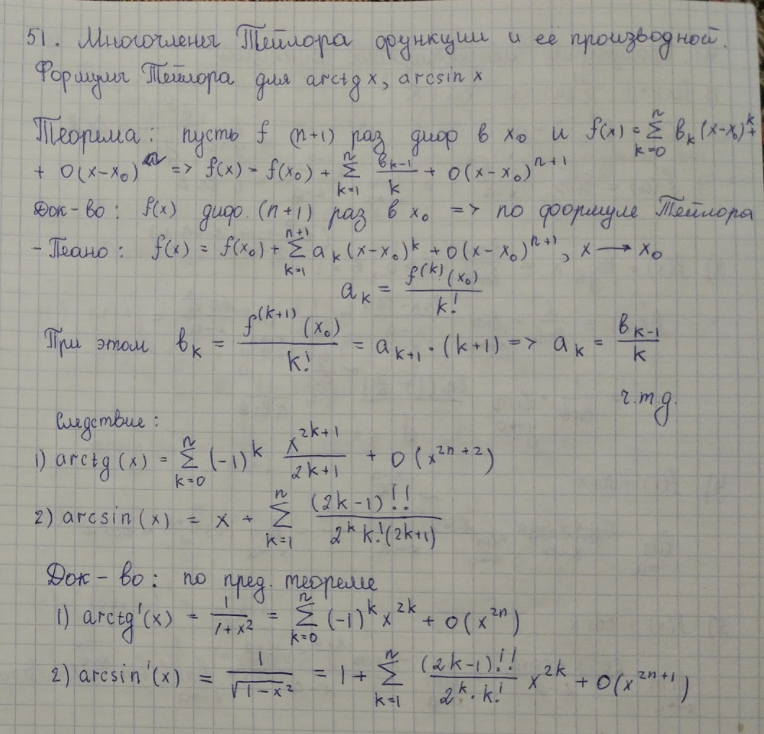 51. Многочлены Тейлора функции и её производной.
Формулы Тейлора для arctg x, arcsin x
Теорема: пусть f (n+1) раз диф в x₀ и f(x) = ∑_{k=0}^{n} b_k (x-x₀)^k +
+ o(x-x₀)^n => f(x) = f(x₀) + ∑_{k=1}^{n} b_{k-1}/k + o(x-x₀)^{n+1}
Док-во: f(x) диф. (n+1) раз в x₀ => по формуле Тейлора
- Пеано: f(x) = f(x₀) + ∑_{k=1}^{n+1} a_k (x-x₀)^k + o(x-x₀)^{n+1}, x → x₀
a_k = f^{(k)}(x₀)/k!
При этом b_k = f^{(k+1)}(x₀)/k! = a_{k+1} · (k+1) => a_k = b_{k-1}/k
ч.т.д.
Следствие:
1) arctg(x) = ∑_{k=0}^{n} (-1)^k x^{2k+1}/(2k+1) + o(x^{2n+2})
2) arcsin(x) = x + ∑_{k=1}^{n} (2k-1)!!/(2^k k!(2k+1))
Док-во: по пред. теореме
1) arctg'(x) = 1/(1+x²) = ∑_{k=0}^{n} (-1)^k x^{2k} + o(x^{2n})
2) arcsin'(x) = 1/√(1-x²) = 1 + ∑_{k=1}^{n} (2k-1)!!/(2^k · k!) x^{2k} + o(x^{2n+1})